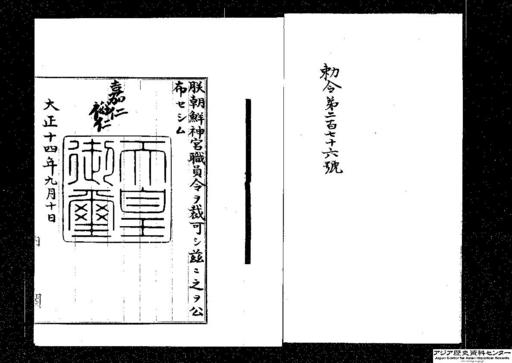 勅令第二百七十六號
朕朝鮮神宮職員令ヲ裁可シ茲ニ之ヲ公
布セシム
嘉仁
裕仁
天皇
御璽
大正十四年九月十日
内
閣
アジア歴史資料センター
Japan Center for Asian Historical Records